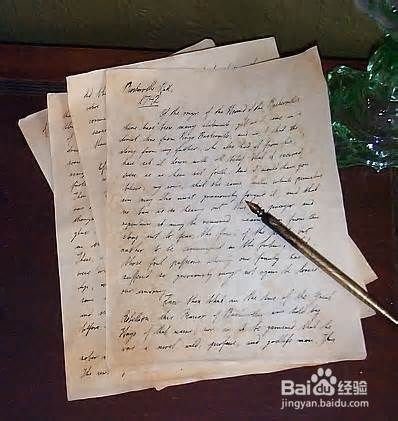 Baskerville Hall
1742
Of the origin of the Hound of the Baskervilles
there have been many statements yet as I come in a
direct line from Hugo Baskerville, and as I had the
story from my father, who also had it from his, I
have set it down with all belief that it occurred
even as is here set forth. And I would have you
believe, my sons, that the same Justice which punishes
sin may also most graciously forgive it, and that
no ban is so heavy but prayer and
repentance it may be removed. from this
story not to fear the fruits of the past, but
rather to be circumspect in the future, that
those foul passions whereby our family has
suffered so grievously may not again be loosed
our undoing.
Know then that in the time of the Great
Rebellion this Manor of Baskerville was held by
Hugo of that name, nor can it be gainsaid that he
was a most wild, profane, and godless man. This
Baidu经验
jingyan.baidu.com